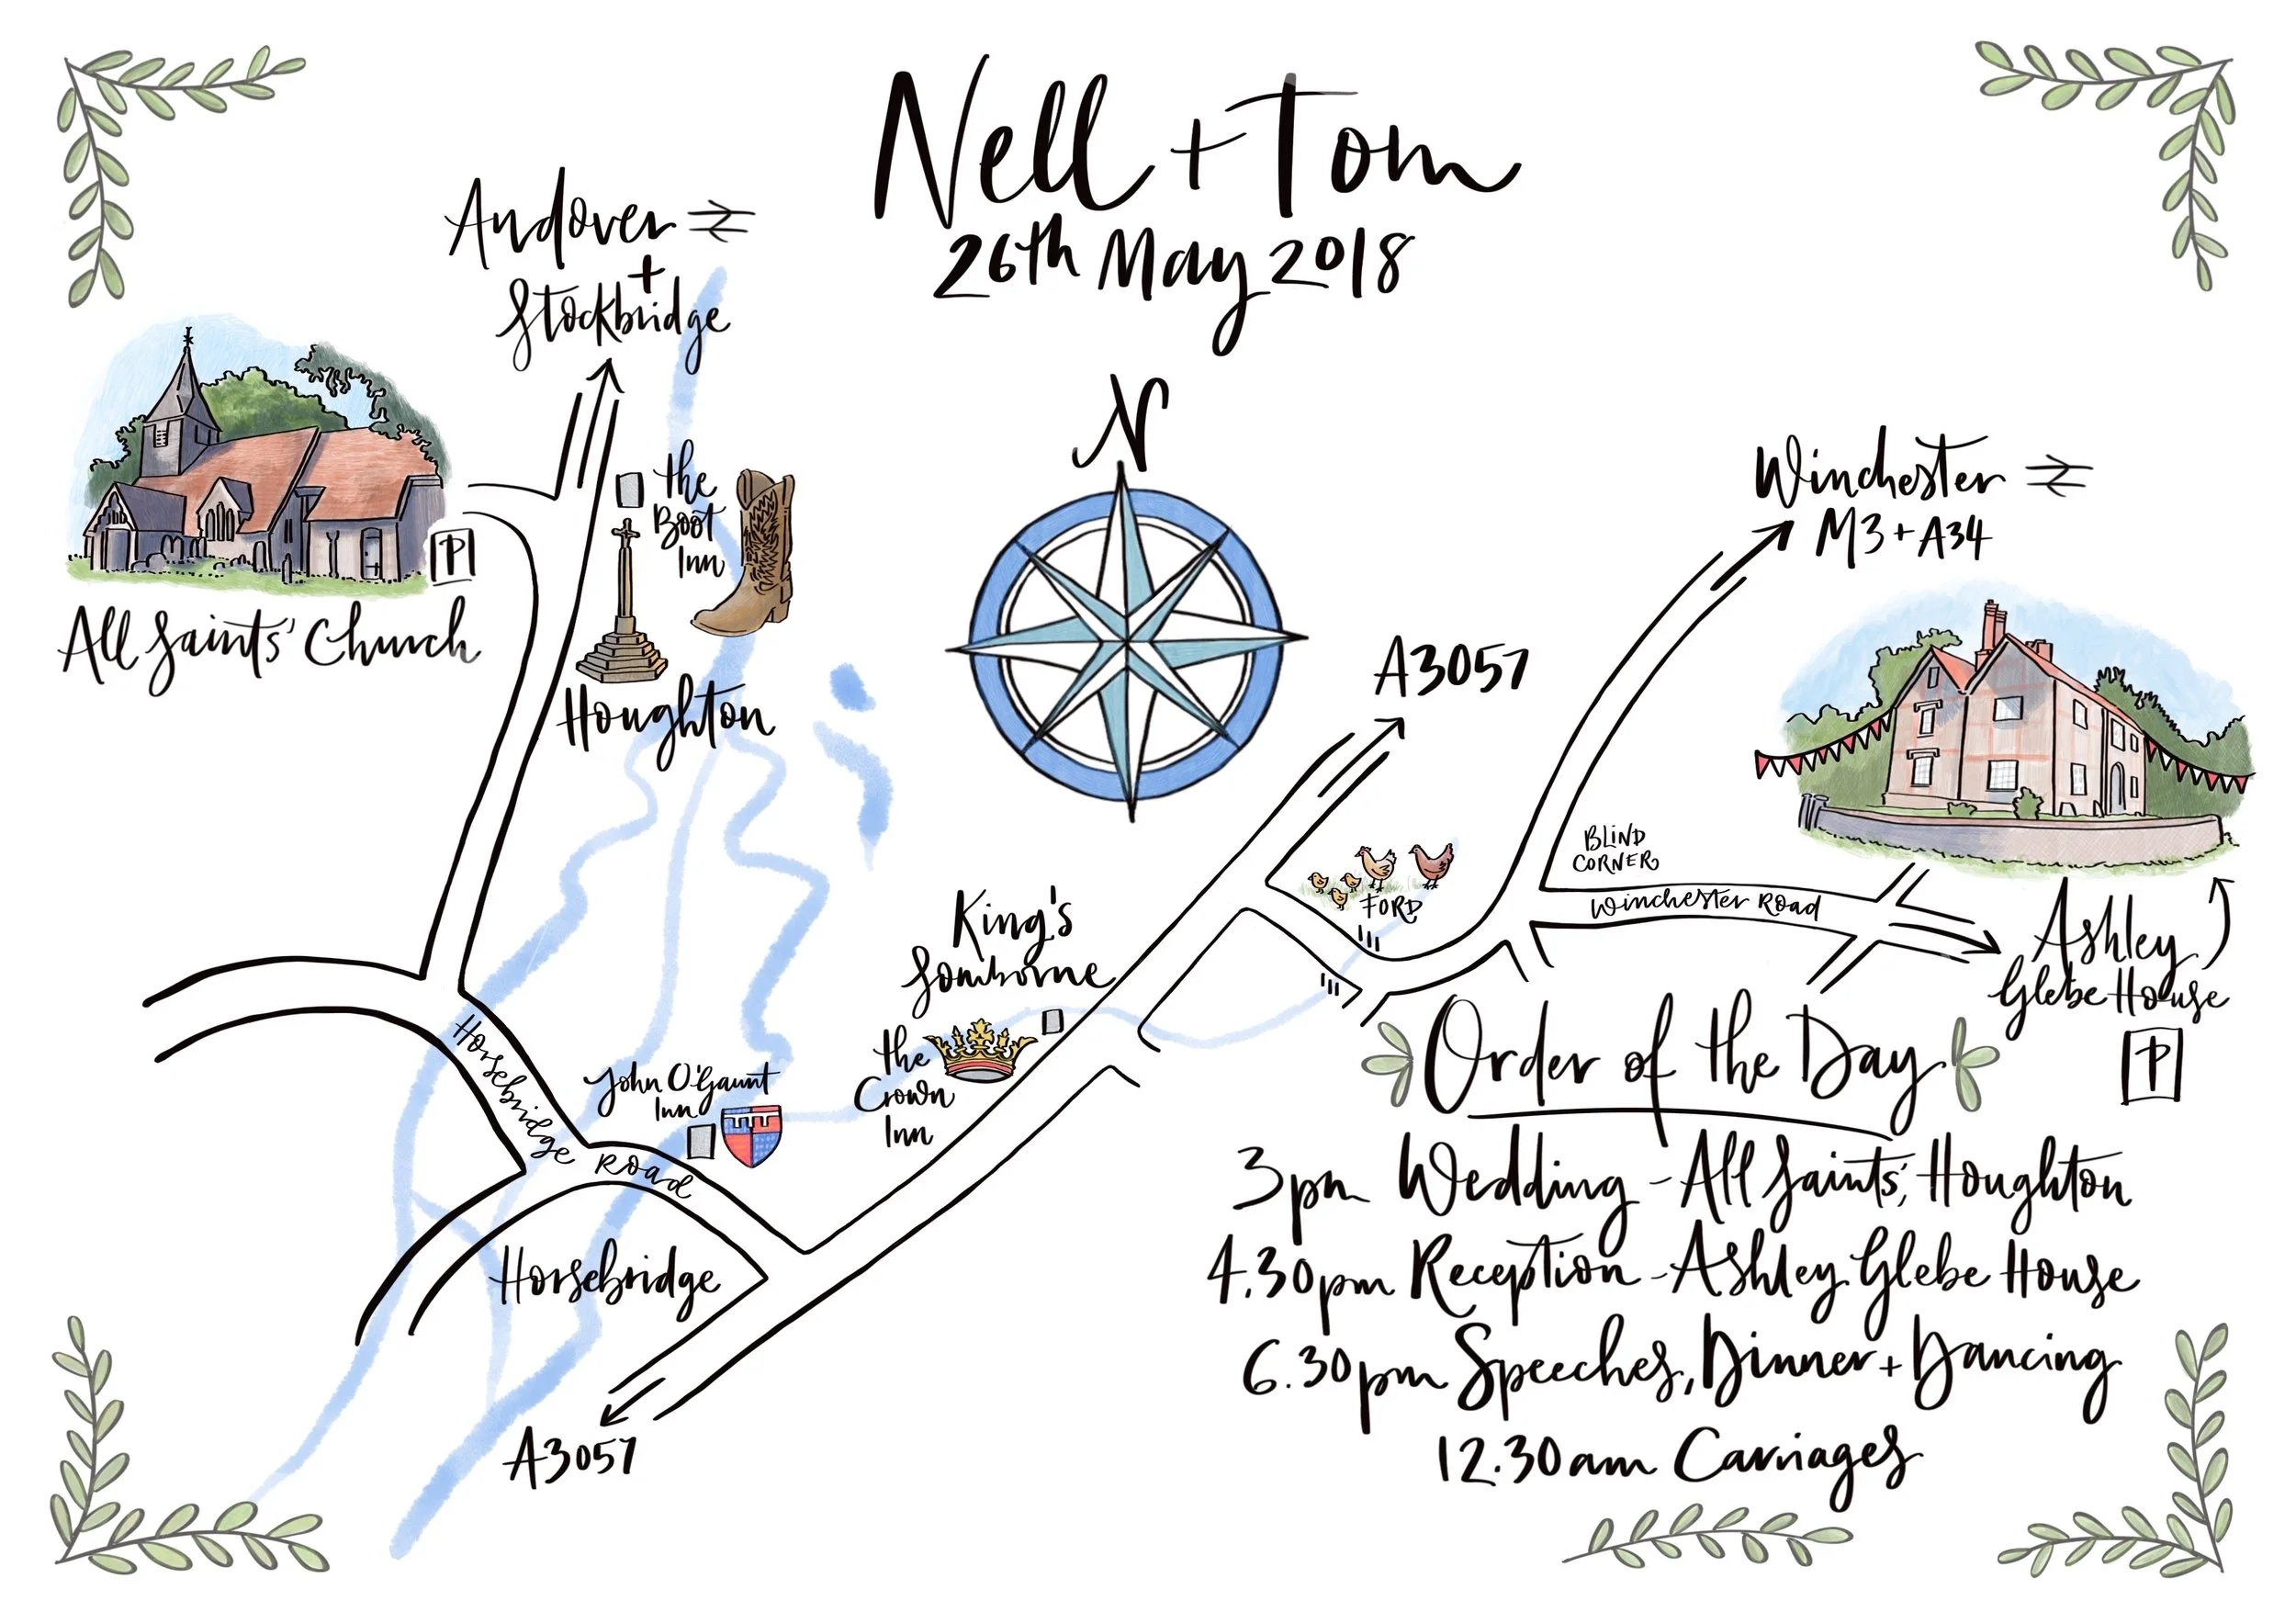 Nell + Tom
26th May 2018
Andover
+
Stockbridge
N
the
Boot
Inn
P
All Saints' Church
Houghton
Winchester
M3 + A34
A3057
BLIND
CORNER
Winchester Road
FORD
Ashley
Glebe House
P
King's
Somborne
the
Crown
Inn
Horsebridge Road
John O'Gaunt
Inn
Horsebridge
A3057
Order of the Day
3pm Wedding - All Saints', Houghton
4.30pm Reception - Ashley Glebe House
6.30pm Speeches, Dinner + Dancing
12.30am Carriages